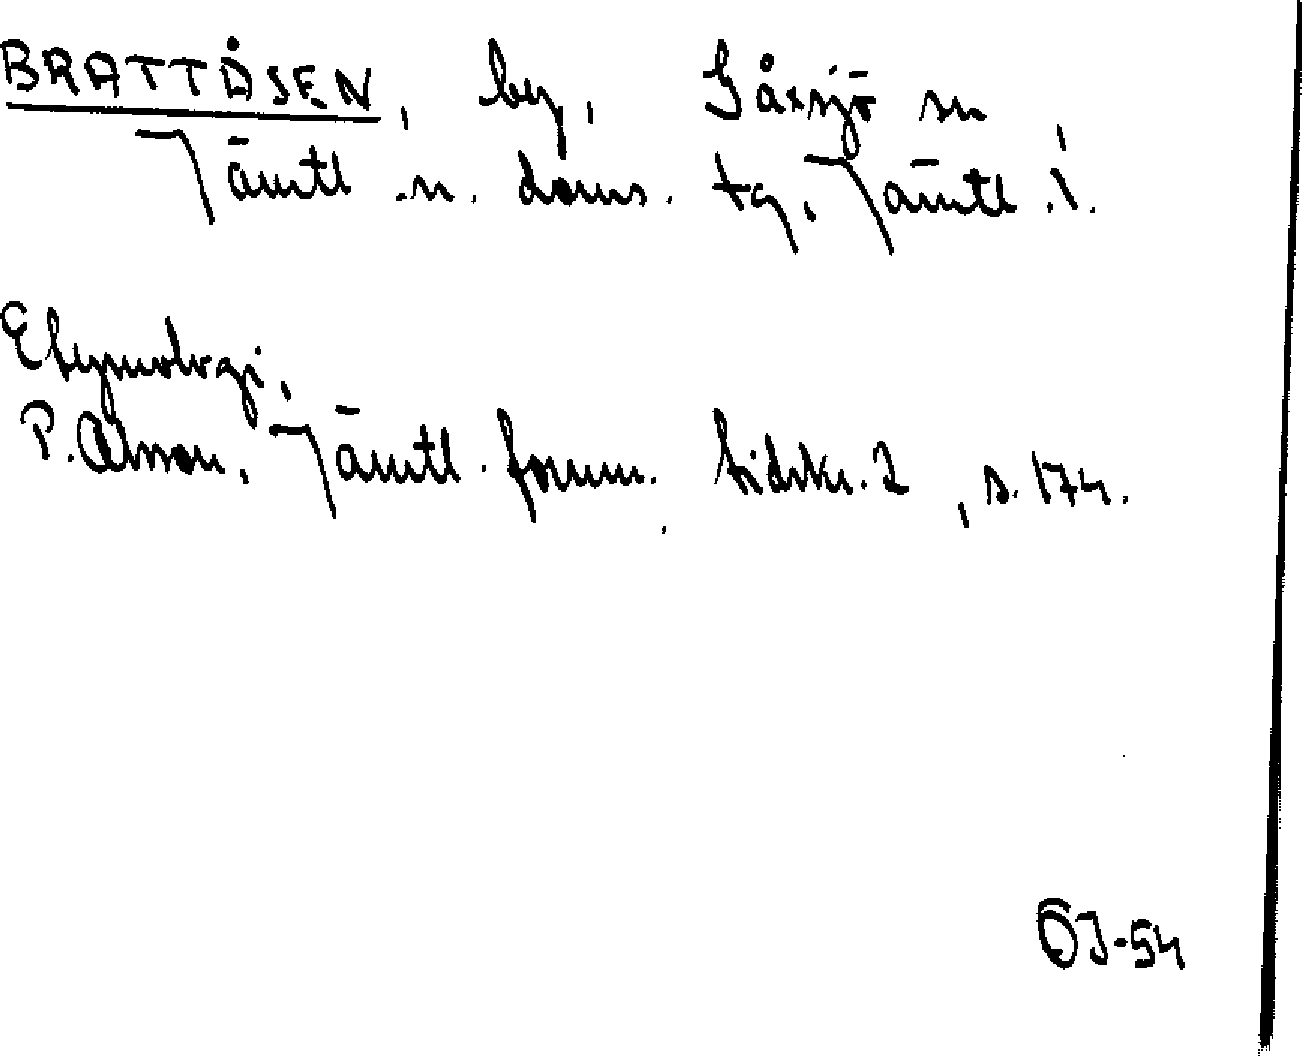 BRATTÅSEN, by, Gåxsjö sn
Jämtl. n. doms. tg, Jämtl. l.
Etymologi,
P. Olsson, Jämtl. fornm. tidskr. 2, s. 174.
ÖJ-54